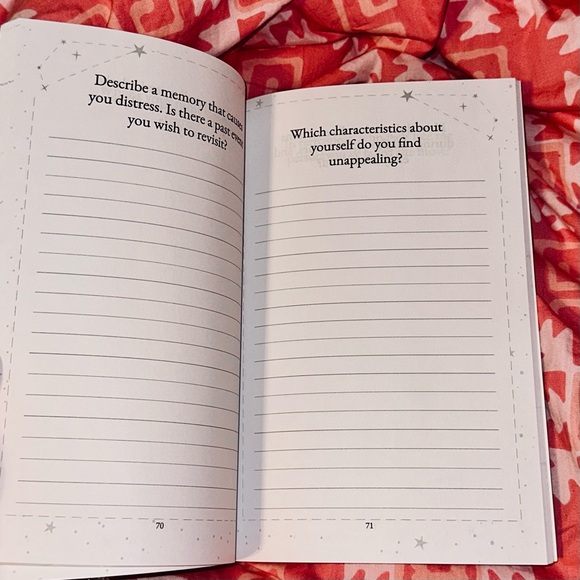 Describe a memory that causes
you distress. Is there a past event
you wish to revisit?
70
Which characteristics about
yourself do you find
unappealing?
71